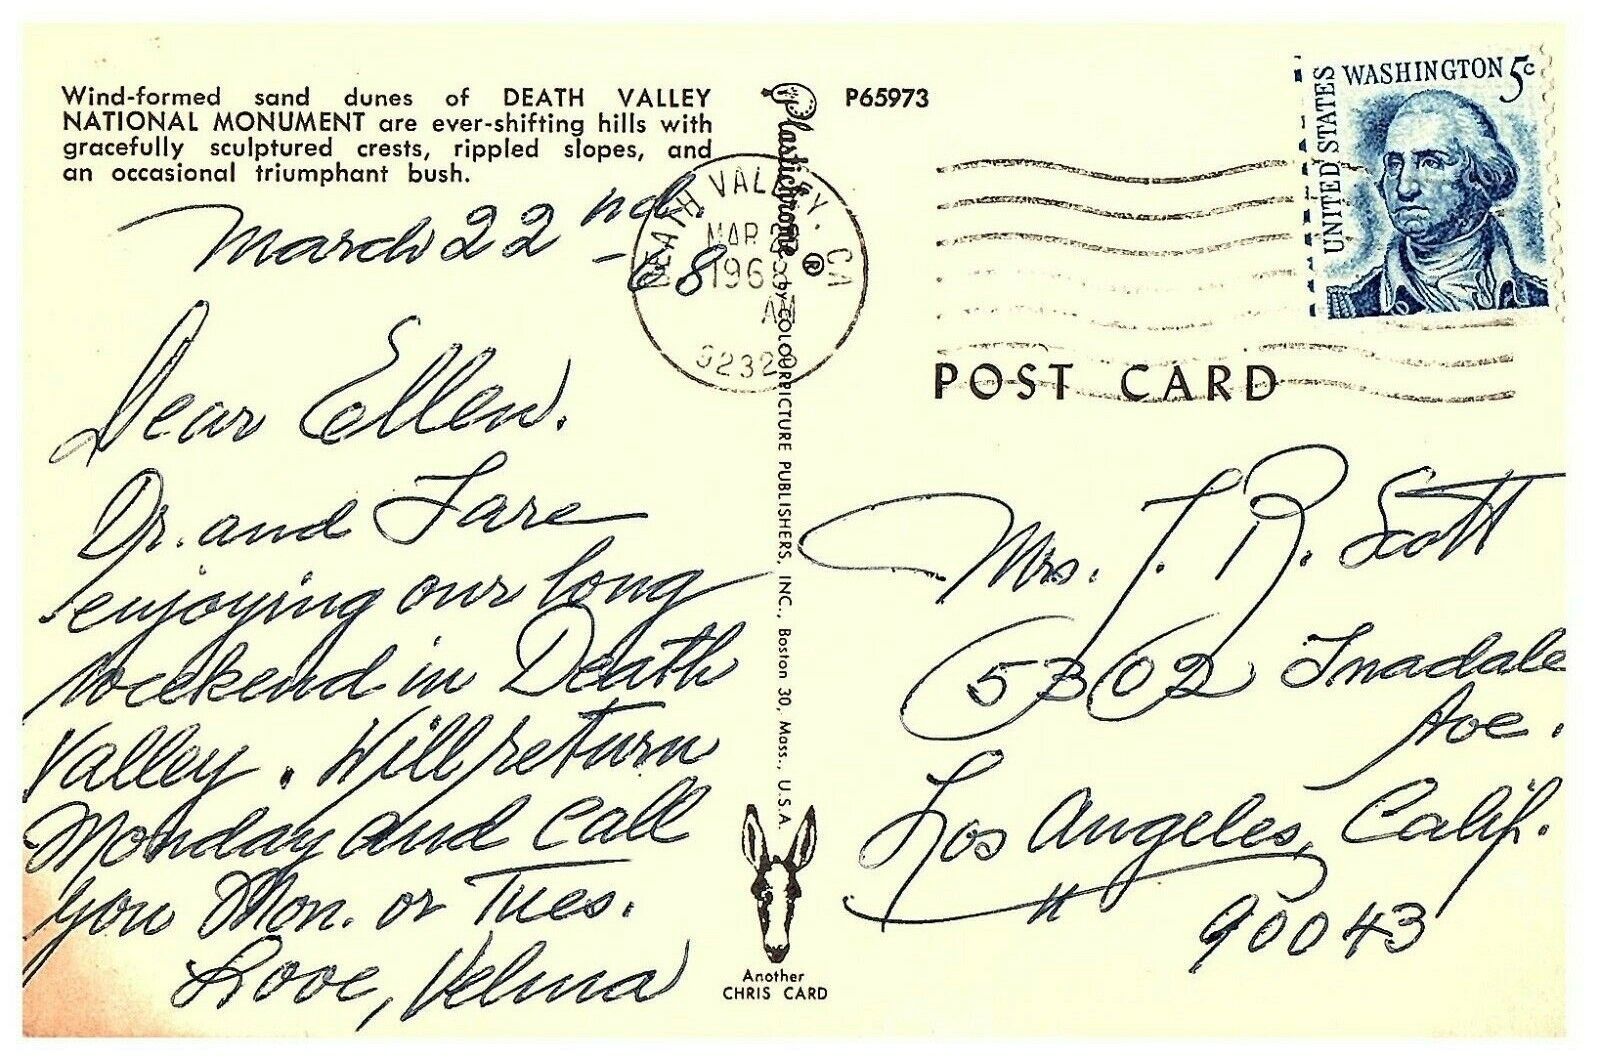 Wind-formed sand dunes of DEATH VALLEY
NATIONAL MONUMENT are ever-shifting hills with
gracefully sculptured crests, rippled slopes, and
an occasional triumphant bush.
March 22nd.
-68
Dear Ellen.
Dr. and I are
enjoying our long
weekend in Death
Valley. Will return
Monday and call
you Mon. or Tues.
Love, Velma
Plastichrome ® by COLOURPICTURE PUBLISHERS, INC., Boston 30, Mass., U.S.A.
Another
CHRIS CARD
P65973
DEATH VALLEY, CA
MAR
196
AM
9232
UNITED STATES
WASHINGTON 5c
POST CARD
Mrs. T. R. Scott
5302 Inadale
Ave.
Los Angeles, Calif.
90043